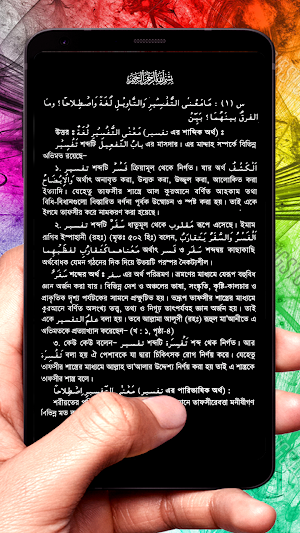 بسم الله الرحمن الرحيم
س (١) : مَا مَعْنَى التَّفْسِيْرِ وَالتَّاوِيْلِ لُغَةً وَاصْطِلَاحًا؟ وَمَا
الْفَرْقُ بَيْنَهُمَا؟ بَيِّنْ
উত্তর : مَعْنَى التَّفْسِيْرِ لُغَةً (تفسير এর শাব্দিক অর্থ) :
تَفْسِيْر শব্দটি بَابُ التَّفْعِيْل এর মাসদার। এর মাদ্দাহ সম্পর্কে বিভিন্ন
অভিমত রয়েছে–
১. تفسير শব্দটি فَسْرٌ ক্রিয়ামূল থেকে নির্গত। যার অর্থ اَلْكَشْفُ
وَالْإِيْضَاحُ অর্থাৎ অনাবৃত করা, উন্মুক্ত করা, উজ্জ্বল করা, আলোকিত করা
ইত্যাদি। যেহেতু তাফসীর শাস্ত্রে আল কুরআনে বর্ণিত আহকাম তথা
বিধি-বিধানগুলো বিস্তারিত বর্ণনা পূর্বক উন্মোচন ও স্পষ্ট করা হয়। তাই একে
ইলমে তাফসীর করে নামকরণ করা হয়েছে।
২. تفسير শব্দটি سفر ধাতুমূলের مقلوب রূপে এসেছে। ইমাম
রাগিব ইস্পাহানী (রহঃ) (মৃতঃ ৫০২ হিঃ) বলেন, اَلْفَسْرُ وَالسَّفْرُ يَتَقَارَبُ
مَعْنَاهُمَا كَتَقَارُبِ لَفْظَيْهِمَا অর্থাৎ فسر ও سفر শব্দদ্বয় কাছাকাছি
অর্থবোধক যেমন গঠনের দিক দিয়ে উভয়টি পরস্পর নৈকট্যশীল।
سَفَرٌ শব্দের অর্থ : سفر এর অর্থ পরিভ্রমণ। ভ্রমণের মাধ্যমে যেরূপ বহুবিধ
জ্ঞান অর্জন করা যায়। বিভিন্ন দেশ ও অঞ্চলের ভাষা, সংস্কৃতি, কৃষ্টি-কালচার ও
প্রাকৃতিক দৃশ্য পর্যটকের সামনে প্রস্ফুটিত হয়। তদ্রূপ তাফসীর শাস্ত্রের মাধ্যমে
কুরআনে বর্ণিত অসংখ্য তত্ত্ব, তথ্য ও নিগূঢ় তাৎপর্যবহ জ্ঞান অর্জন হয়। তাই
একে علم التفسير বলা হয়। তবে আল্লামা আলূসী (রহঃ) রূহুল মা'আনীতে এ
অভিমতকে প্রত্যাখ্যান করেছেন– (খ : ১, পৃষ্ঠা-৪)
৩. কেউ কেউ বলেন– تفسير শব্দটি تَفْسِرَةٌ শব্দ থেকে নির্গত। আর
تَفْسِرَةٌ বলা হয় ঐ পেশাবকে যা দ্বারা চিকিৎসক রোগ নির্ণয় করে। যেহেতু
তাফসীর শাস্ত্রের মাধ্যমে আল্লাহ তা'আলার উদ্দেশ্য নির্ণয় করা হয় তাই এ শাস্ত্রকে
তাফসীর শাস্ত্র বলে।
مَعْنَى التَّفْسِيْرِ اِصْطِلَاحًا (تفسير এর পারিভাষিক অর্থ) :
শরীয়তের পরি তাফসীরবেত্তা মনীষীগণ
বিভিন্ন মত